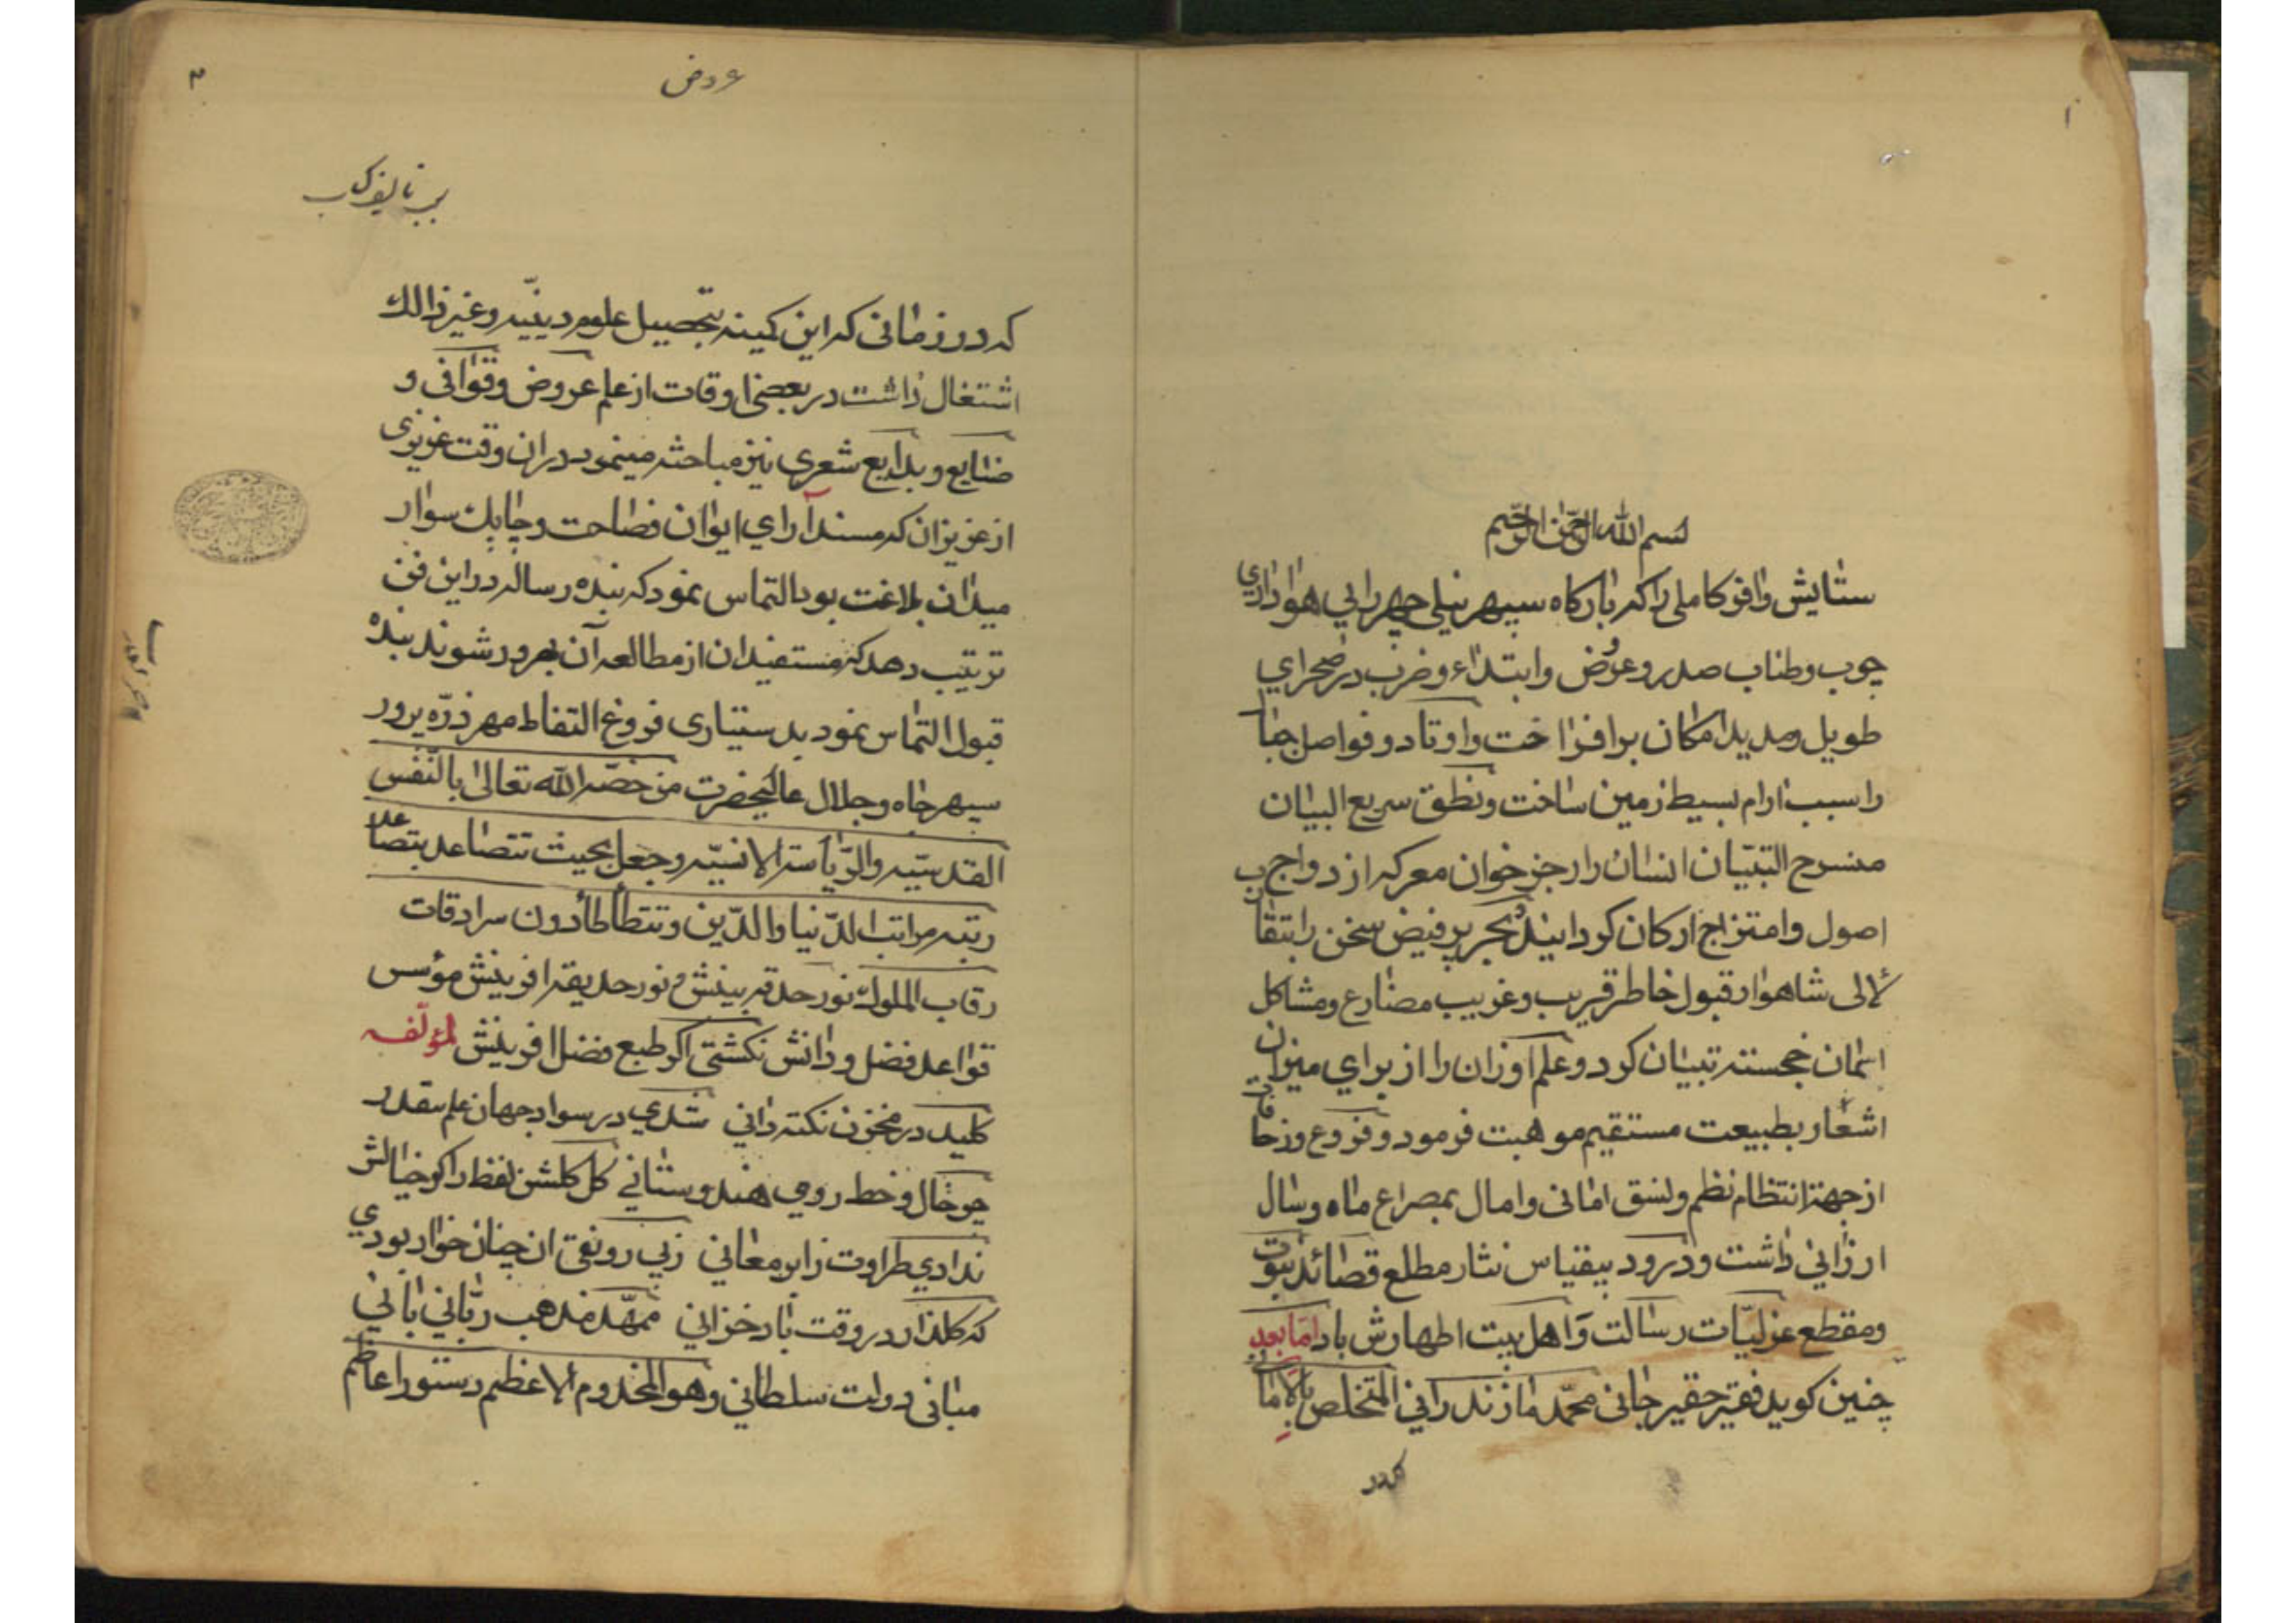 بسم الله الرحمن الرحیم
ستایش وافر کاملی را که بارگاه سپهر نیلی چهر را بی هواداری
چوب وطناب صدر و عروض وابتداء وضرب در صحرای
طویل ومدید امکان برافراخت واوتاد و فواصل جبال
را سبب ارام بسیط زمین ساخت ونطق سریع البیان
منسرح التبیان انسان را رجز خوان معرکه ازدواج
اصول وامتزاج ارکان کردانید بحر پر فیض سخن را
لآلی شاهوار قبول خاطر قریب وغریب مضارع ومشاکل
خجسته تبیان کرد وعلم اوزان را از برای میزان
اشعار بطبیعت مستقیم موهبت فرمود وفروع وزحافات
از جهة انتظام نظم ونسق امانی وامال بمصراع ماه وسال
ارزانی داشت ودرود بیقیاس نثار مطلع قصائد نبوت
ومقطع غزلیّات رسالت وَاهل بیت اطهارش باد امّا بعد
چنین کوید فقیر حقیر جانی محمّد مازندرانی المتخلص بالامانی
که در
۳
عروض
که در زمانی که این کمینه بتحصیل علوم دینیّه وغیر ذالك
اشتغال داشت در بعضی اوقات از علم عروض وقوافی و
صنایع وبدایع شعری نیز مباحثه مینمود دران وقت عزیزی
از عزیزان که مسند آرای ایوان فصاحت وچابك سوار
میدان بلاغت بود التماس نمود که بنده رساله در این فن
ترتیب دهد که مستفیدان از مطالعه آن بهرور شوند بنده
قبول التماس نمود بدستیاری فروغ التفاط مهر ذرّه پرور
سپهر جاه وجلال عالیحضرت من خصّه الله تعالی بالنّفس
القدسیّه والرّیاسة الانسیّه وجعل بحیث تتصاعد بتصاعد
رتبته مراتب الدّنیا والدّین وتتطأطأ دون سرادقات
رقاب الملوك نور حدقه بینش و نور حدیقه افرینش مؤسس
قواعد فضل ودانش نکشتی اکر طبع فضل افرینش لمؤلّفه
کلید در مخزن نکته دانی شدی در سواد جهان علم بقدر
چو خال وخط رومی هندوستانی کل کلشن لفظ را کر خیالش
ندادی طراوت زابر معانی زبی رونقی ان چنان خوار بودی
که کلذار در وقت باد خزانی ممهّد مذهب ربّانی بانی
مبانی دولت سلطانی وهو المخدوم الاعظم دستور اعاظم